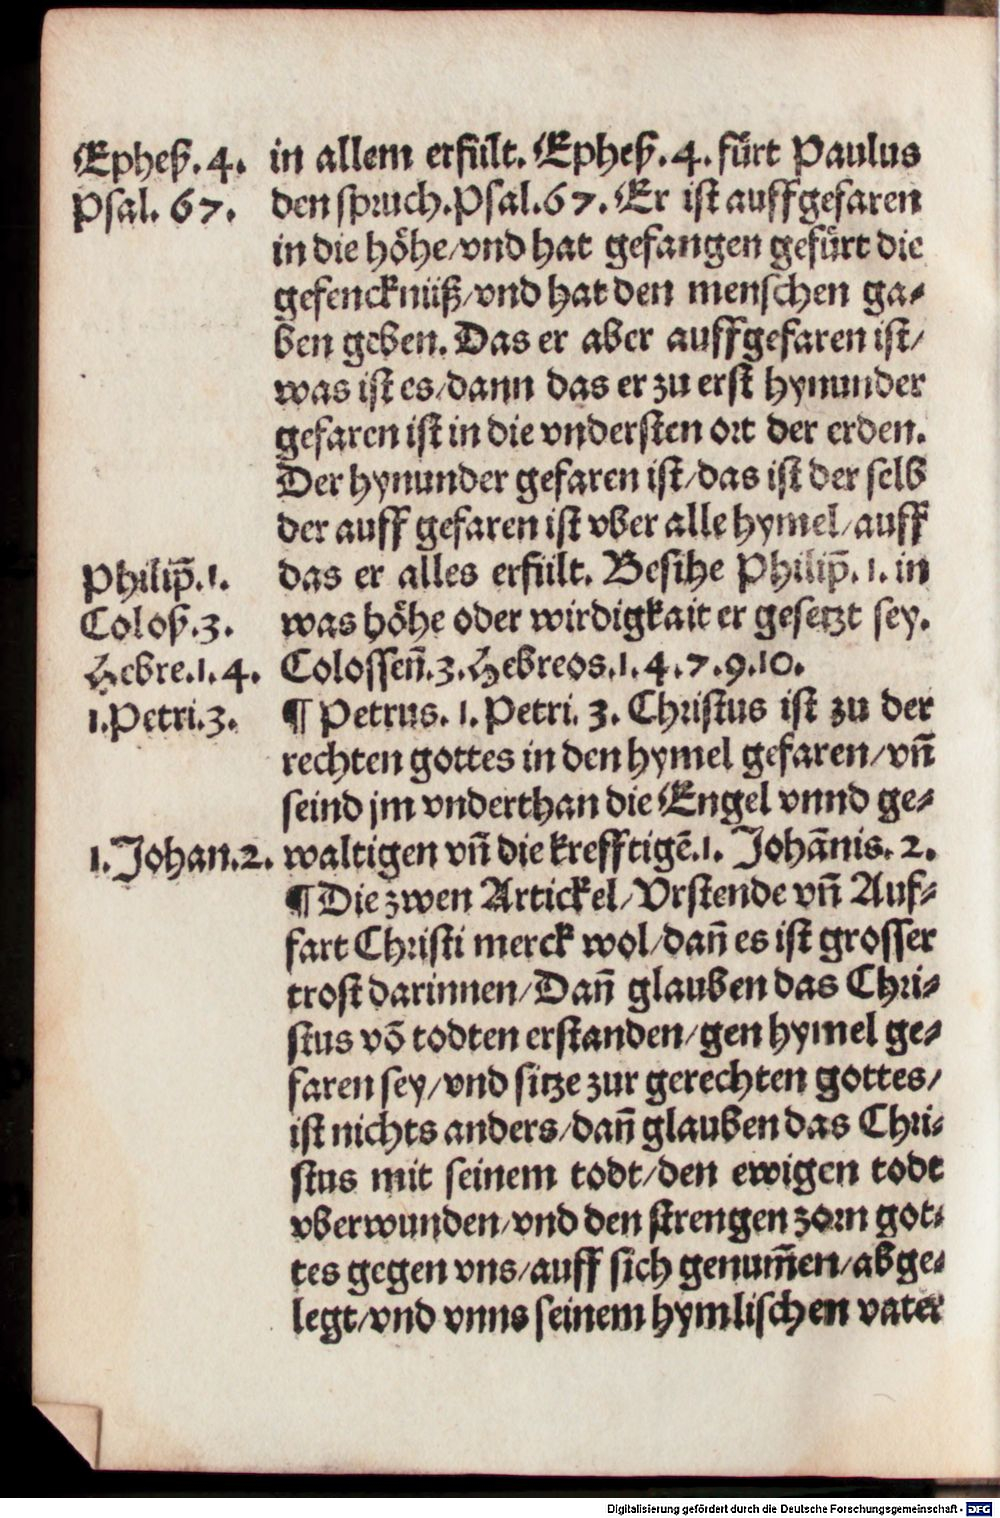 Epheß.4. in allem erfült. Epheß.4. fürt Paulus
Psal. 67. den spruch.Psal.67. Er ist auffgefaren
in die höhe/vnd hat gefangen gefürt die
gefencknüß/vnd hat den menschen ga⸗
ben geben. Das er aber auffgefaren ist/
was ist es/dann das er zu erst hynunder
gefaren ist in die vndersten ort der erden.
Der hynunder gefaren ist/das ist der selb
der auff gefaren ist vber alle hymel/auff
Philip̄.1. das er alles erfült. Besihe Philip̄.1. in
Coloß.3. was höhe oder wirdigkait er gesetzt sey.
Hebre.1.4. Colosseñ.3.Hebreos.1.4.7.9.10.
1.Petri.3. ¶ Petrus. 1. Petri. 3. Christus ist zu der
rechten gottes in den hymel gefaren/vñ
seind jm vnderthan die Engel vnnd ge⸗
1.Johan.2. waltigen vñ die krefftigē.1. Johānis. 2.
¶ Die zwen Artickel/Vrstende vñ Auf⸗
fart Christi merck wol/dañ es ist grosser
trost darinnen/Dañ glauben das Chri⸗
stus vō todten erstanden/gen hymel ge⸗
faren sey/vnd sitze zur gerechten gottes/
ist nichts anders/dañ glauben das Chri⸗
stus mit seinem todt/den ewigen todt
vberwunden/vnd den strengen zorn got⸗
tes gegen vns/auff sich genum̄en/abge⸗
legt/vnd vnns seinem hymlischen vater
Digitalisierung gefördert durch die Deutsche Forschungsgemeinschaft - DFG